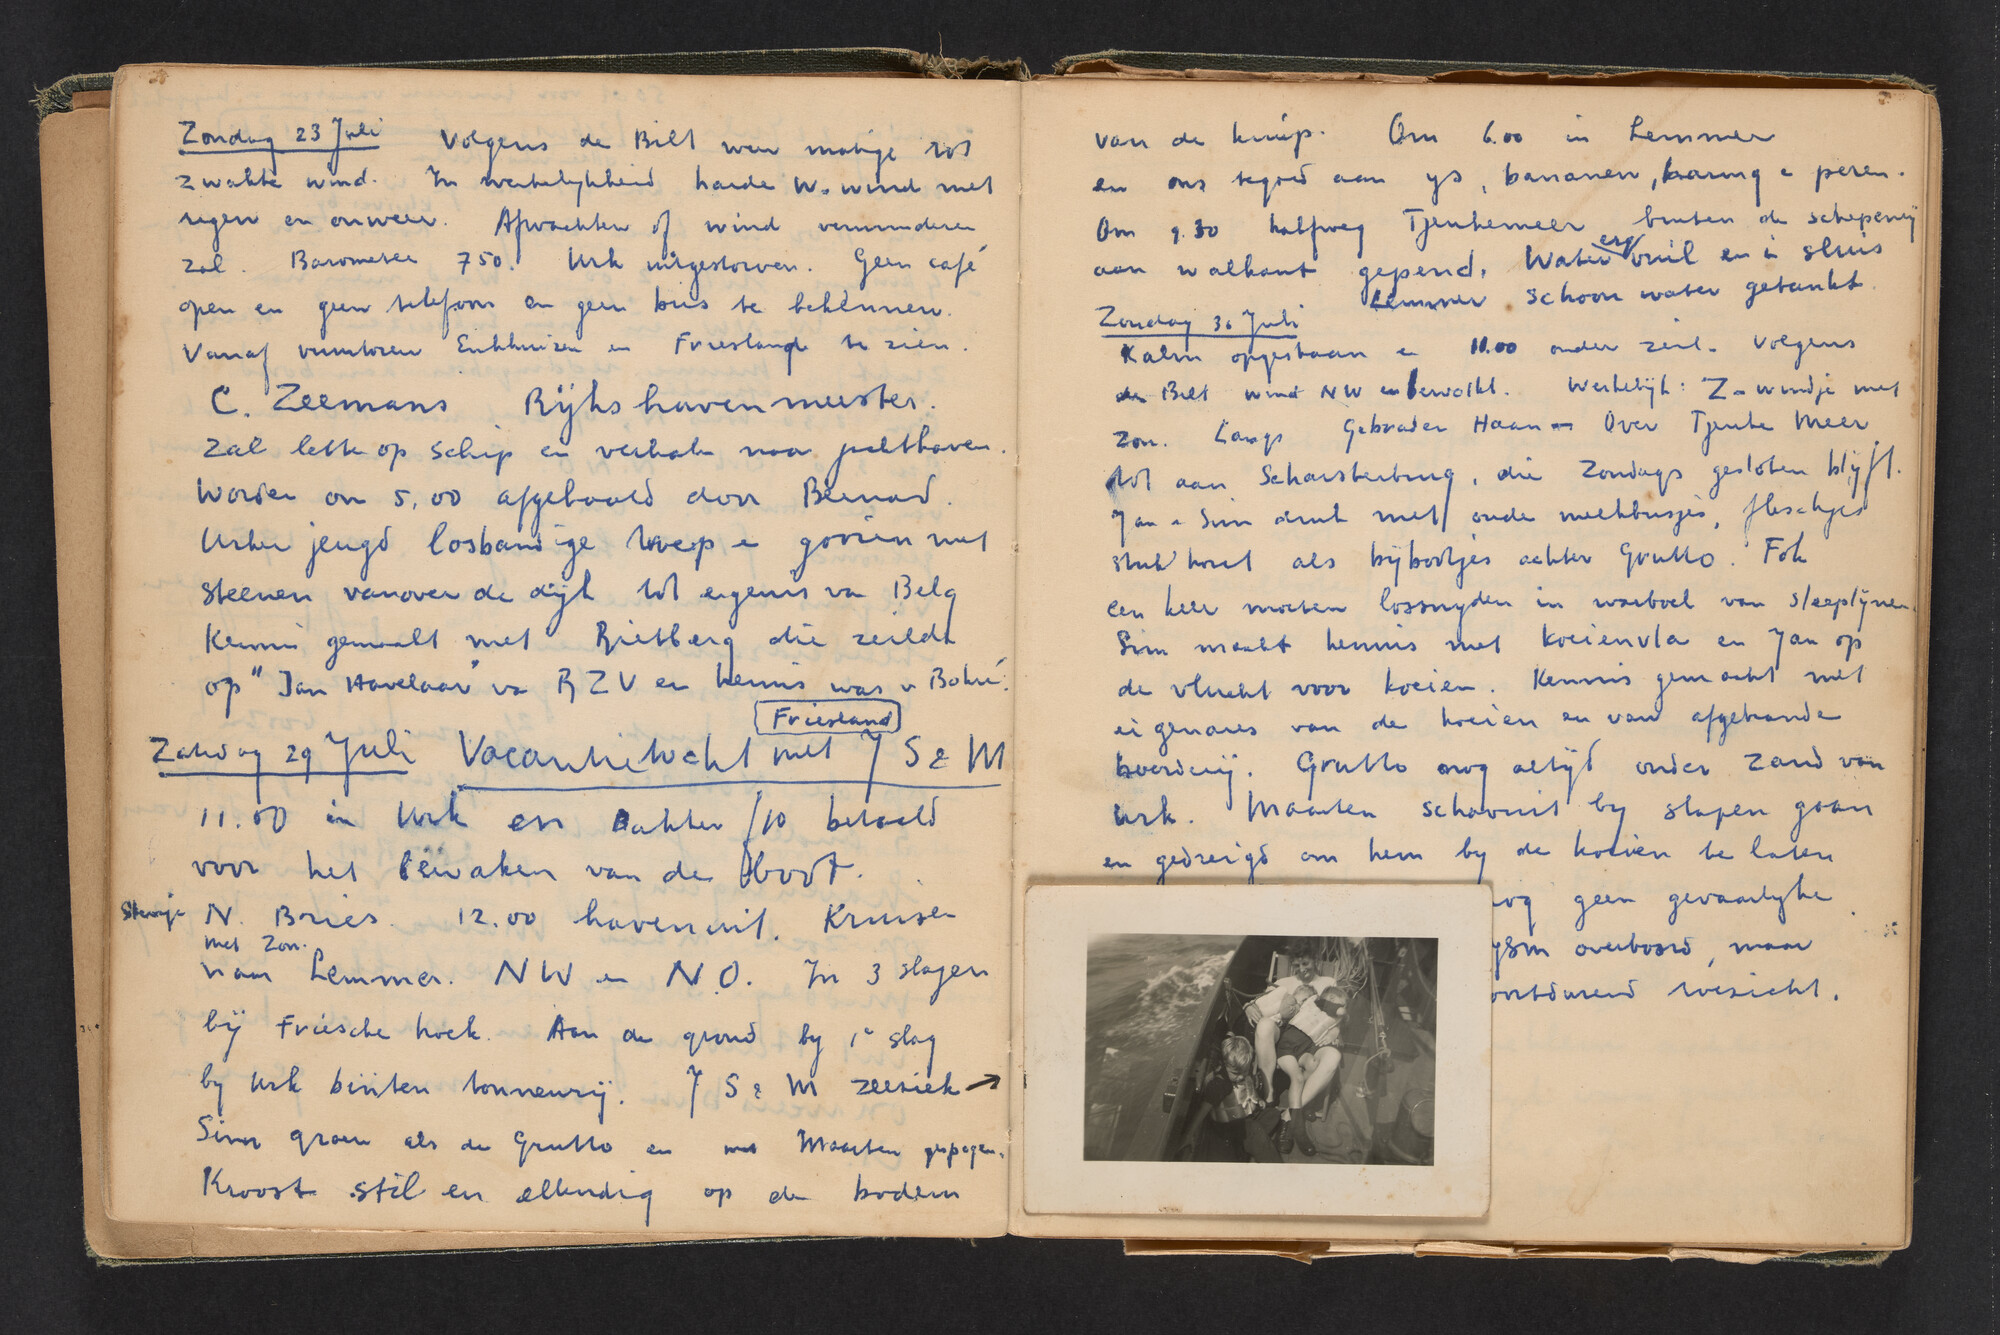 Zondag 23 Juli Volgens de Bilt weer matige tot
zwakke wind. In werkelijkheid harde W. wind met
regen en onweer. Afwachten of wind verminderen
zal. Barometer 750. Urk uitgestorven. Geen café
open en geen telefoon en geen bus te bekennen.
Vanaf vuurtoren Enkhuizen en Friesland te zien.
C. Zeemans Rijkshavenmeester.
Zal letten op schip en verhalen naar jachthaven.
Worden om 5,00 afgehaald door Bernard.
Urker jeugd losbandige troep en gooien met
steenen vanover de dijk tot ergenis van Belg
Kennis gemaakt met Rietberg die zeilde
op "Jan Havelaar" va RZV en kennis was v Bakri.
Friesland
Zaterdag 29 Juli Vacantietocht met J S & M
11.00 in Urk en Bakker f10 betaald
voor het bewaken van de boot.
N. Bries. 12.00 haven uit. Kruisen
met zon.
naar Lemmer. NW en N.O. In 3 slagen
bij Friesche hoek. Aan de grond by 1e slag
by Urk binnen tonnenrij. J S & M zeeziek →
Sim groen als de Grutto en met Maarten gespogen.
Kroost stil en ellendig op de bodem
van de kuip. Om 6.00 in Lemmer
en ons tegoed aan ys, bananen, haring e peren.
Om 9.30 halfweg Tjeukemeer buiten de scheperij
aan walkant gepend. Water erg vuil en in sluis
Lemmer schoon water getankt.
Zondag 30 Juli
Kalm opgestaan e 11.00 onder zeil. Volgens
de Bilt wind NW en bewolkt. Werkelijk: Z-windje met
zon. Langs Gebraden Haan Over Tjeuke Meer
tot aan Scharsterbrug, die Zondags gesloten blijft.
Jan & Sim druk met oude melkbusjes, fleschjes
stuk hout als bijbootjes achter Grutto. Fok
een keer moeten lossnyden in warboel van sleeplijnen.
Sim maakt kennis met koeienvla en Jan op
de vlucht voor koeien. Kennis gemaakt met
eigenares van de koeien en van afgebrande
boerderij. Grutto nog altijd onder zand van
Urk. Maarten schavuit by slapen gaan
en gedreigd om hem by de koeien te laten
nog geen gevaarlyke
overboord, maar
toezicht.